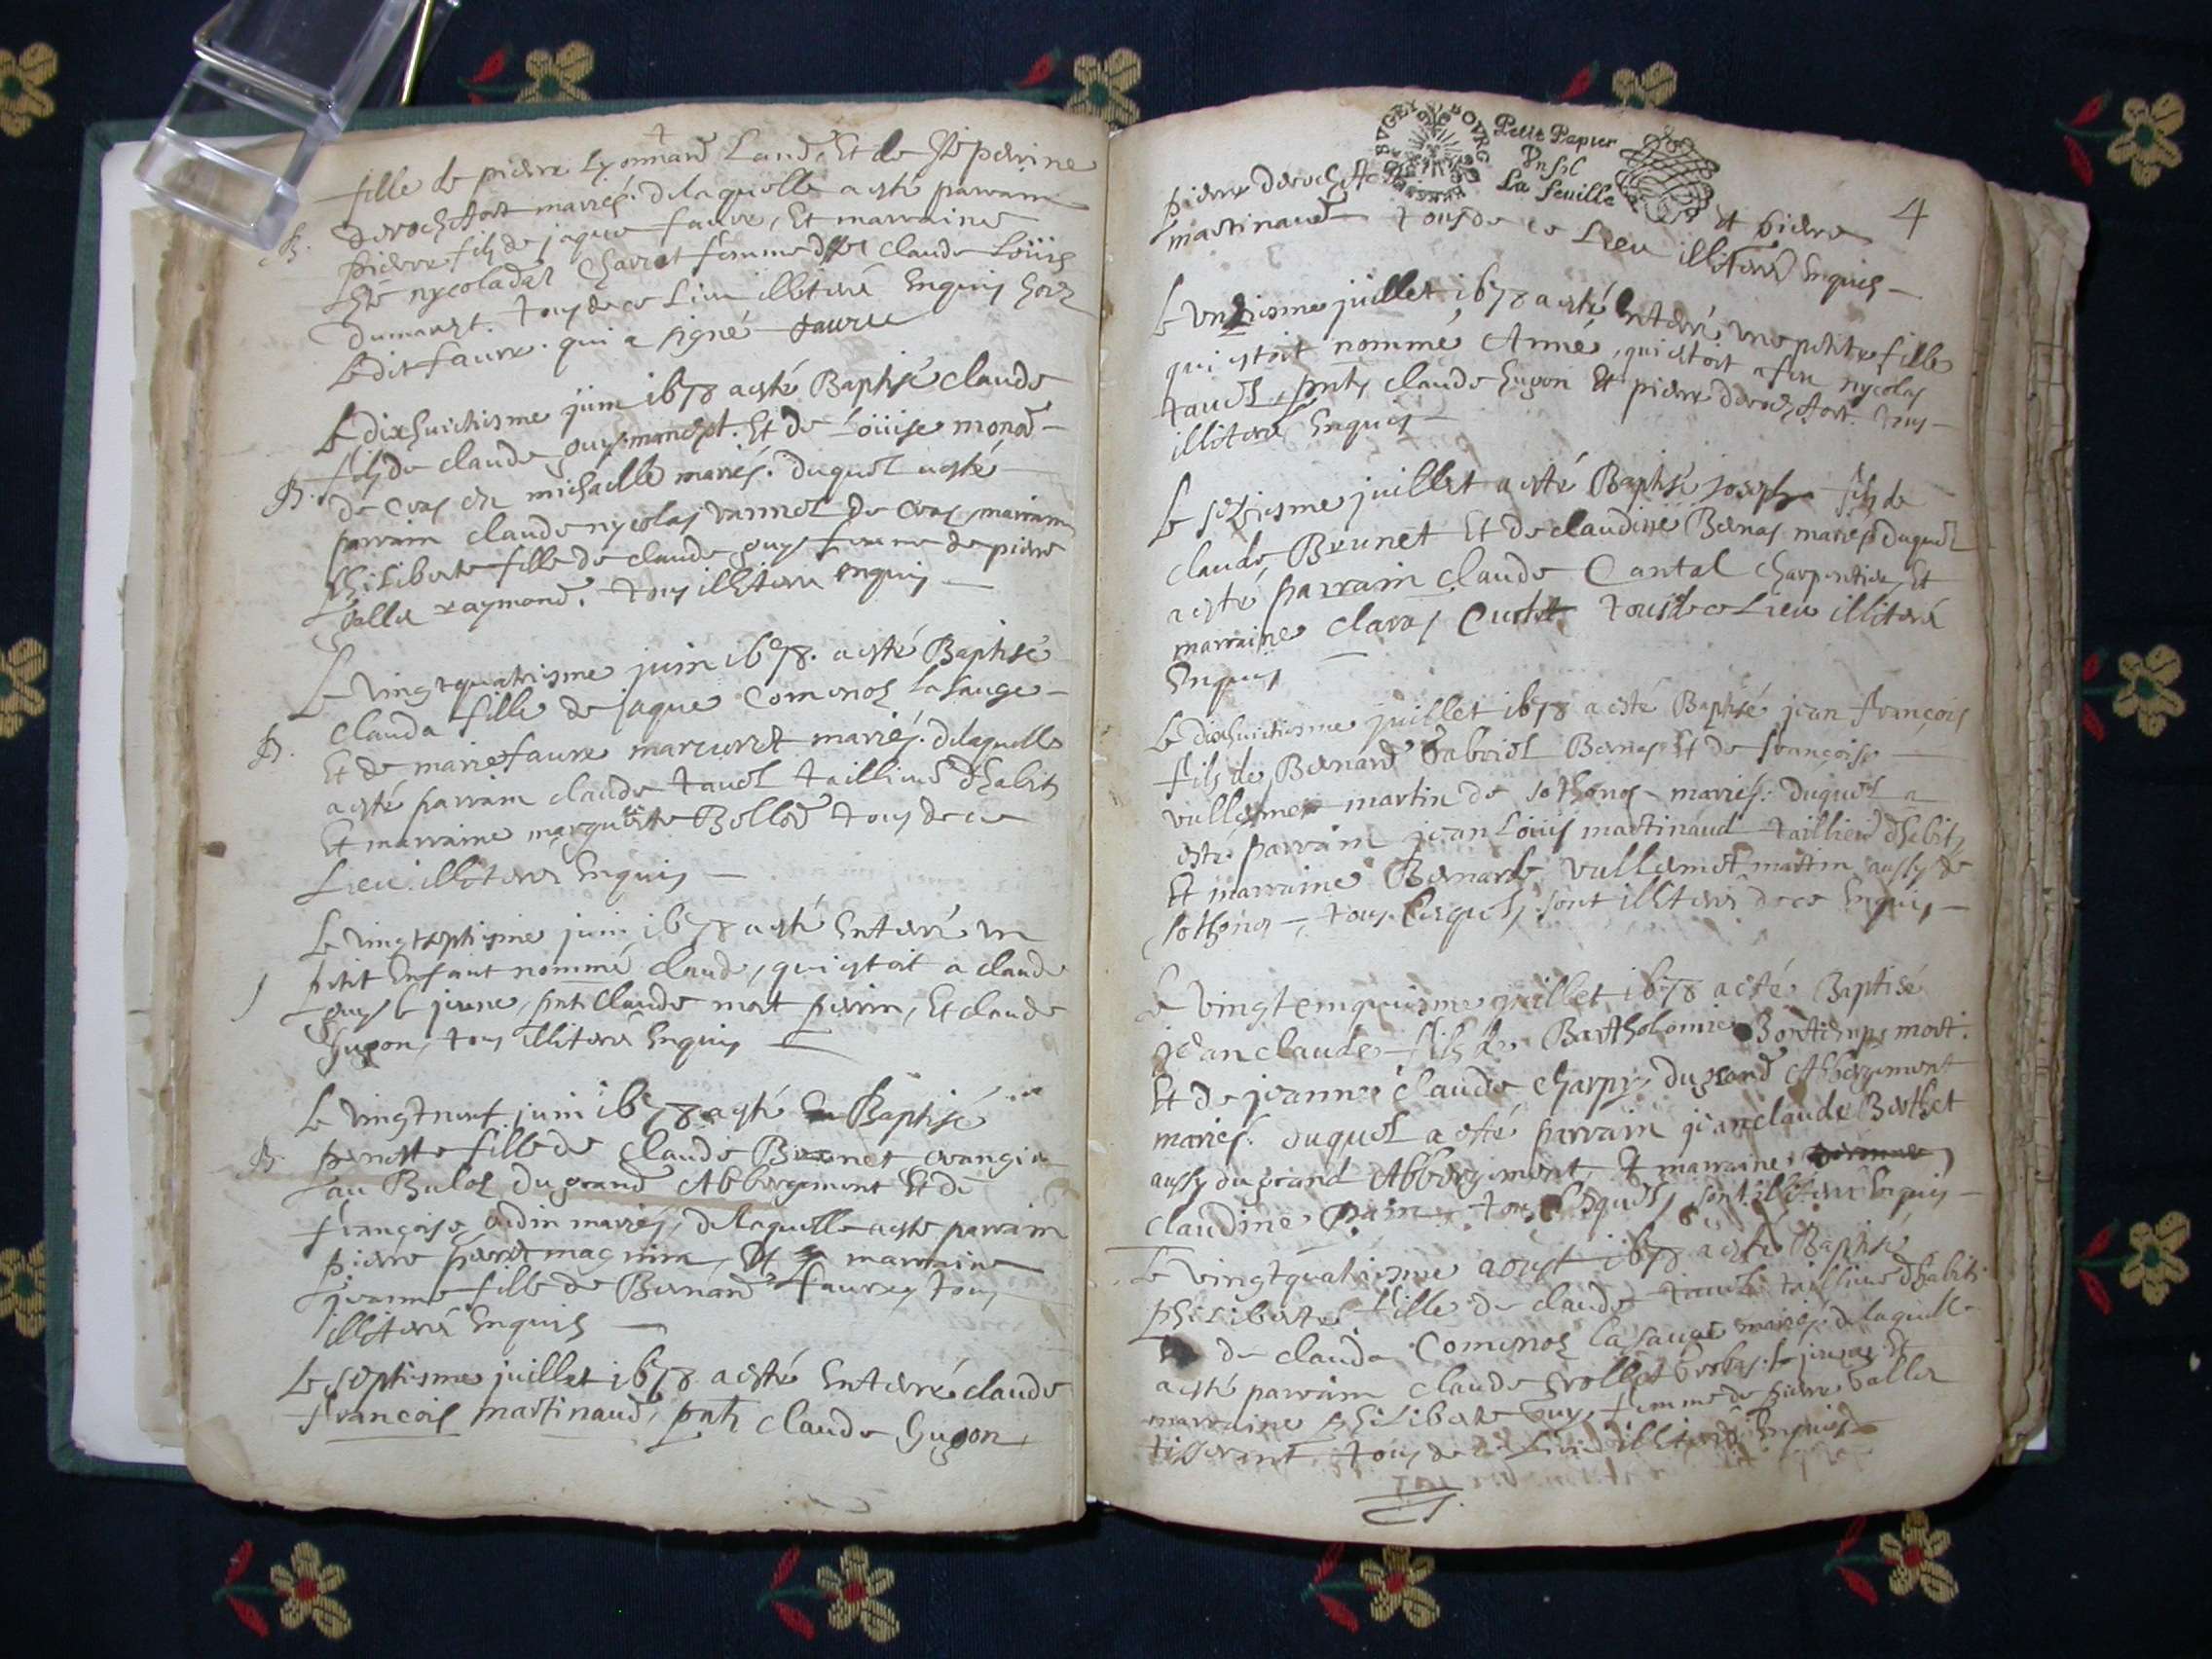 fille de pierre Lyonnard Land, Et de Peperine
derochfort mariés. delaquelle a esté parrain
B. pierre fils de jaque faure, Et marraine
nycolade Charlet femme de Claude Loüis
Dumarest. tous de ce Lieu illiteré Enquis hors
Ledit faure. qui a signé faure
Le dixhuictiesme juin 1678 a esté Baptisé claude
fils de claude guy. Et de Loüise monod
B. de Cras en michaille mariés. duquel a esté
parrain claude nycolas vannel de Cras, marraine
philiberte fille de claude guy femme de pierre
vallet raymond. tous illiteré enquis
Le vingtquatriesme juin 1678. a esté Baptisé
B. Clauda fille de jaque Comonol la sauge
Et de marie faure mariés. delaquelle
a esté parrain claude tavel taillieur d'habits
Et marraine marguerite Bollod tous de ce
Lieu illiteré Enquis
Le vingtseptiesme juin 1678 a esté Enterré un
petit Enfant nommé claude, qui estoit a claude
guy le jeune, pnts claude mort pierin, Et claude
hugon, tous illiteré Enquis
Le vingtneuf juin 1678 a esté Baptisé
B. pernette fille de claude Brunet
au Bulol du grand Abbergement Et de
françoise odin mariés, delaquelle a esté parrain
pierre perret magnin, Et marraine
jeanne fille de Bernard faure, tous
illiteré Enquis
Le septiesme juillet 1678 a esté Enterré claude
françois martinaud, pnts claude hugon
BUGEY BOURG
Petit Papier
Un sol
La feuille
4
pierre derochfort Et pierre
martinaud tous de ce Lieu illiteré Enquis
Le unziesme juillet 1678 a esté Enterré une petite fille
qui estoit nommé Anne, qui estoit a feu nycolas
tavel, pnts claude hugon Et pierre derochfort. tous
illiteré Enquis
Le seziesme juillet a esté Baptisé joseph fils de
claude Brunet Et de claudine Bernas mariés duquel
a esté parrain claude Cantal charpentier, Et
marraine Clara Curtet tous de ce Lieu illiteré
Enquis
Le dixhuictiesme juillet 1678 a esté Baptisé jean françois
fils de Bernard Gabriel Bernas Et de françoise
vullermet martin de sothonos mariés. duquel a
esté parrain jean Loüis martinaud taillieur d'habits
Et marraine Bernarde vullermet martin aussy de
sothonos, tous lesquels sont illiteré de ce Enquis
Le vingtcinquiesme juillet 1678 a esté Baptisé
jean claude fils de Bartholomie Bontemps mort.
Et de jeanne claude charpy, du grand Abbergement
mariés. duquel a esté parrain jean claude Berthet
aussy du grand Abbergement, Et marraine
claudine tous lesquels sont illiteré Enquis
Le vingtquatriesme aoust 1678 a esté Baptisé
philiberte fille de claude tavel taillieur d'habits
Et de clauda Comonol la sauge mariés. delaquelle
a esté parrain claude le jeune Et
marraine philiberte Guy, femme de pierre vallet
tisserant, tous de ce Lieu illiteré Enquis